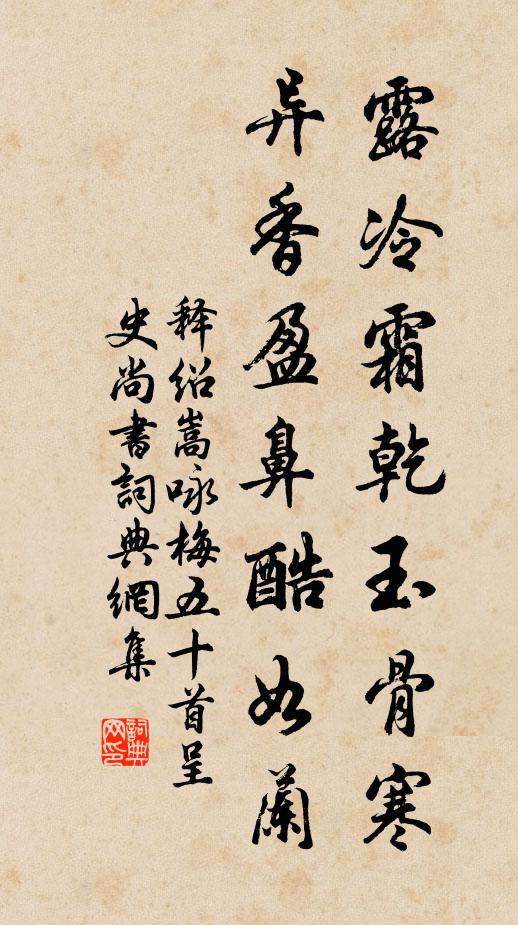 露冷霜乾玉骨寒
异香盈鼻酷如蘭
释绍嵩咏梅五十首呈
史尚書詞典網集
詞典网印